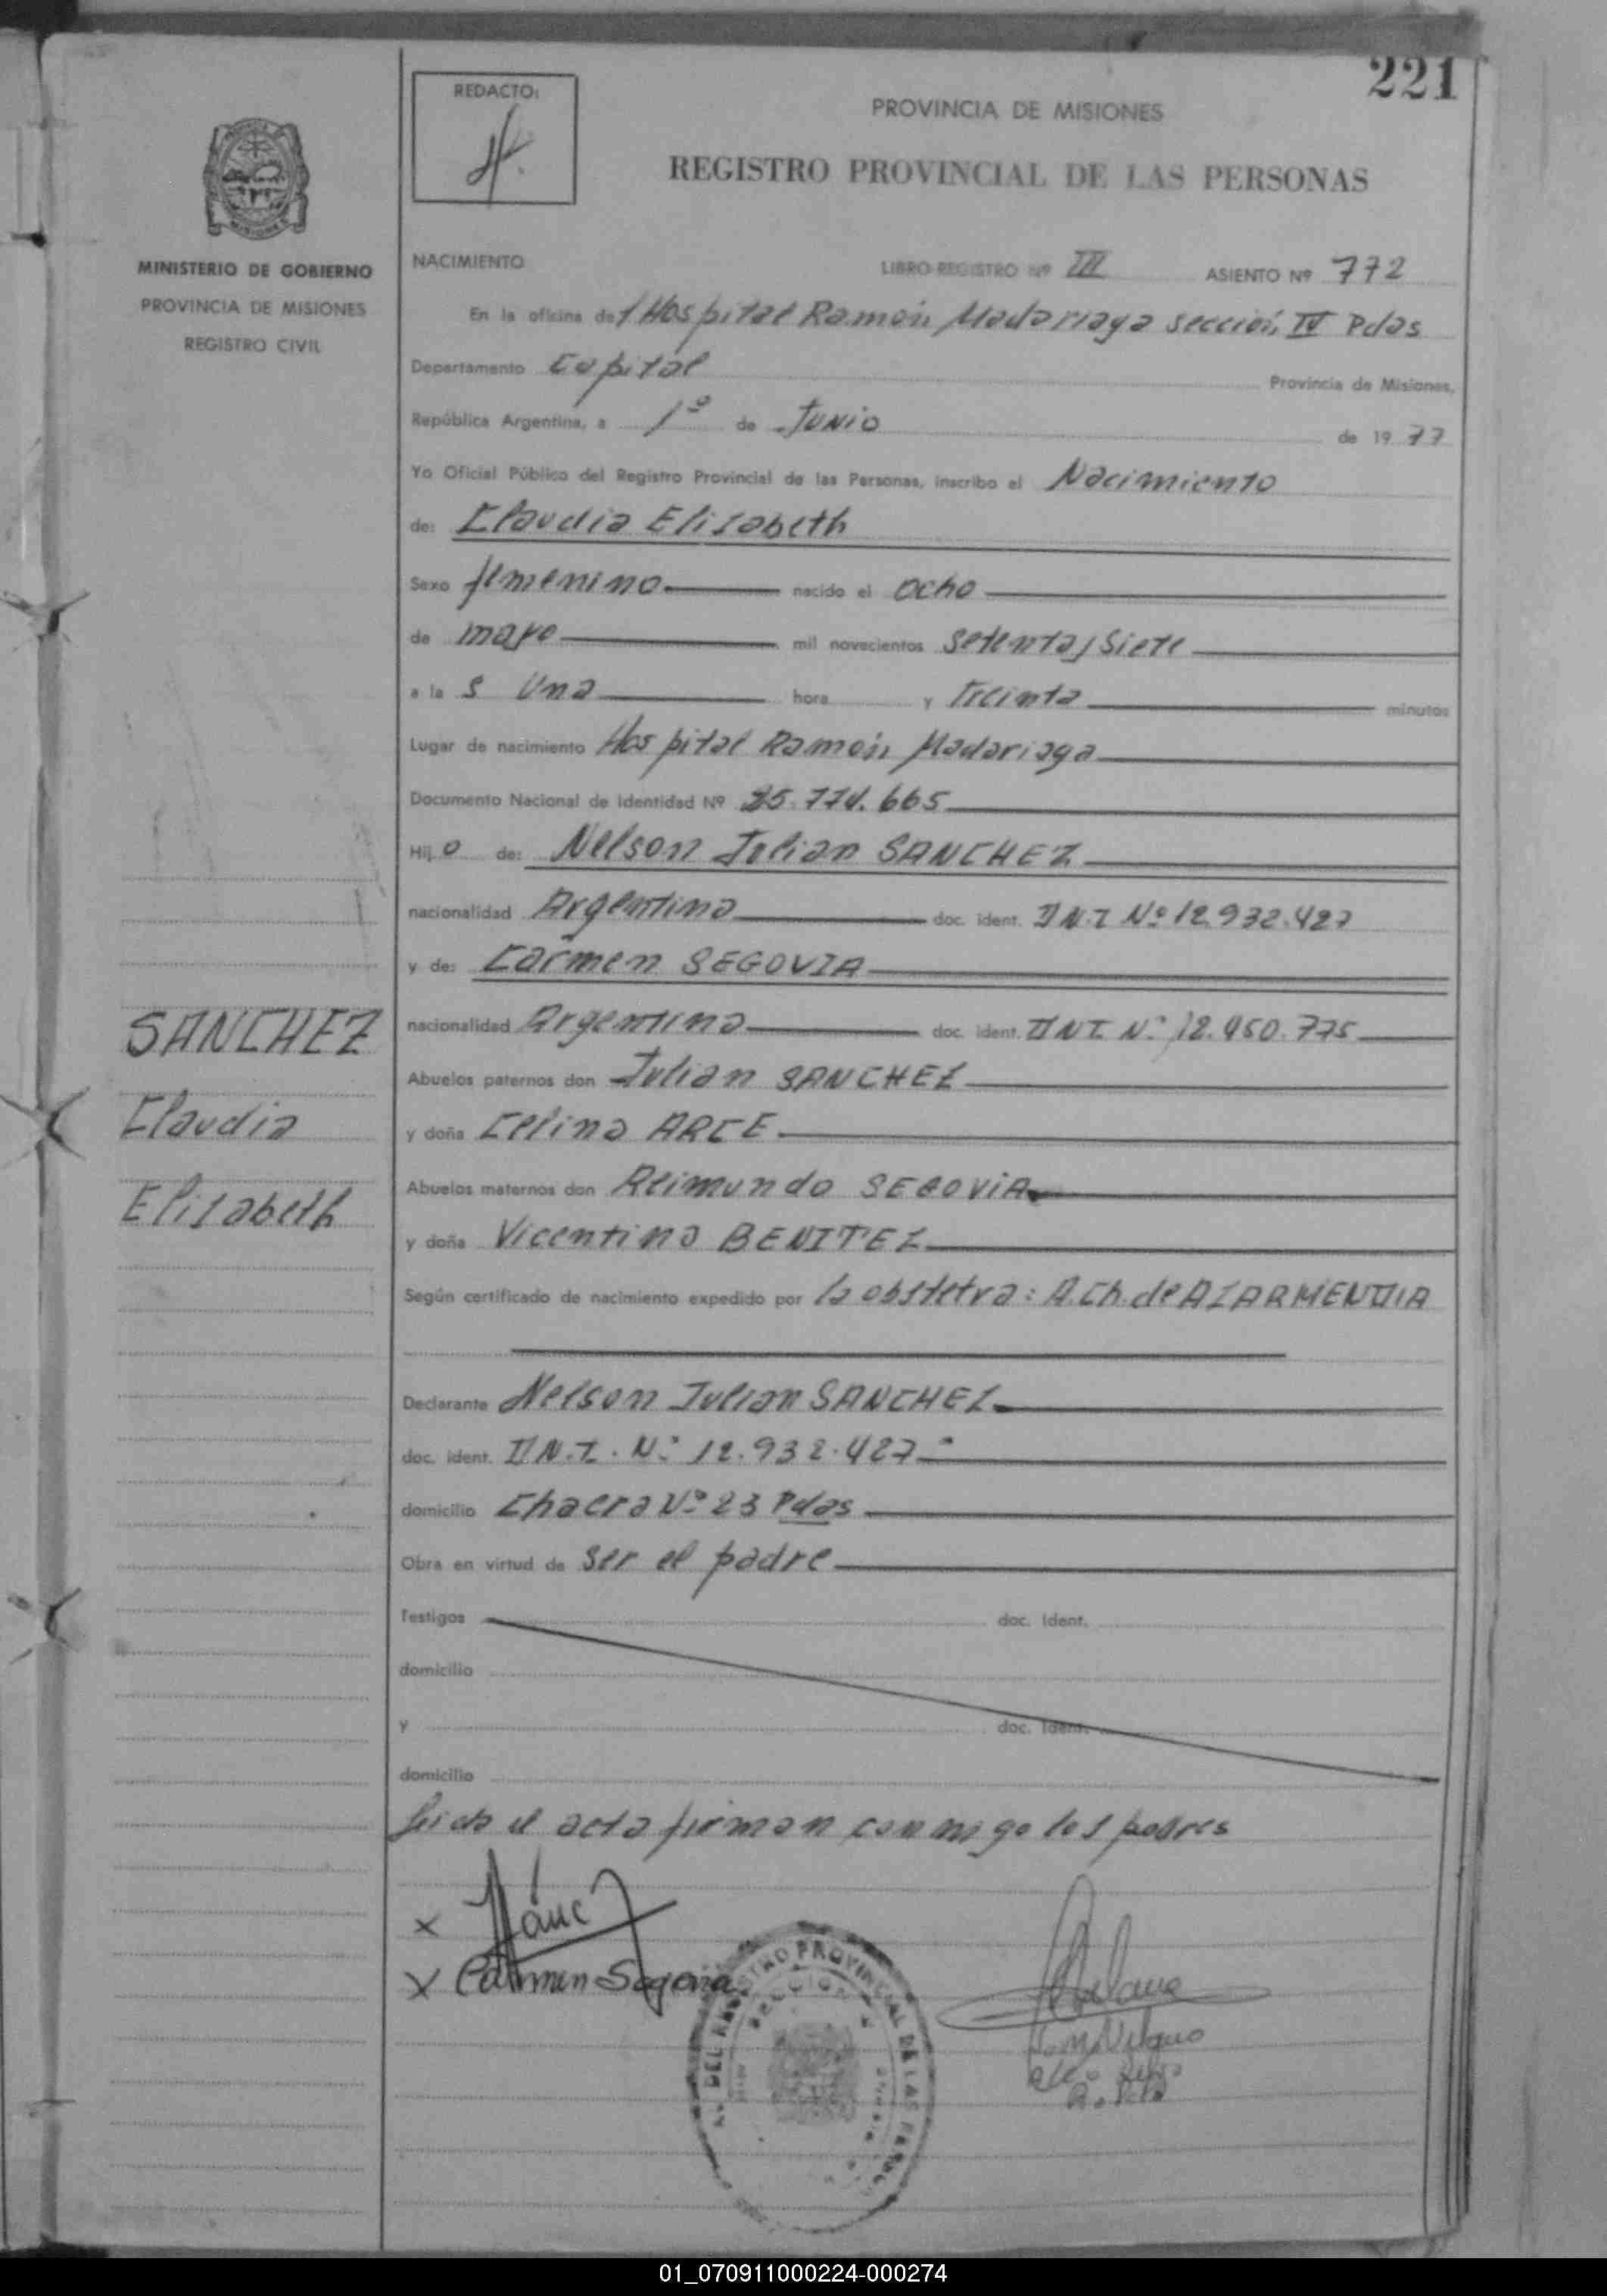 221
REDACTO:
PROVINCIA DE MISIONES
REGISTRO PROVINCIAL DE LAS PERSONAS
MISIONES
MINISTERIO DE GOBIERNO
PROVINCIA DE MISIONES
REGISTRO CIVIL
NACIMIENTO LIBRO REGISTRO Nº III ASIENTO Nº 772
En la oficina del Hospital Ramón Madariaga sección IV Pdas
Departamento Capital Provincia de Misiones,
República Argentina, a 1º de Junio de 1977
Yo Oficial Público del Registro Provincial de las Personas, inscribo el Nacimiento
de: Claudia Elisabeth
Sexo femenino nacido el ocho
de mayo mil novecientos setenta y siete
a la s una hora y treinta minutos
Lugar de nacimiento Hospital Ramón Madariaga
Documento Nacional de Identidad Nº 25.774.665
Hij o de: Nelson Julian SANCHEZ
nacionalidad Argentina doc. ident. D N.I Nº 12.932.427
y de: Carmen SEGOVIA
nacionalidad Argentina doc. ident. D N I. Nº 12.450.775
Abuelos paternos don Julian SANCHEZ
y doña Celina ARCE
Abuelos maternos don Reimundo SEGOVIA
y doña Vicentina BENITEZ
Según certificado de nacimiento expedido por la obstetra: A.Ch. de AZARMENDIA
Declarante Nelson Julian SANCHEZ
doc. ident. D N.I. Nº 12.932.427
domicilio Chacra Nº 23 Pdas
Obra en virtud de ser el padre
Testigos doc. Ident.
domicilio
y doc. Ident.
domicilio
SANCHEZ
Claudia
Elisabeth
Leida el acta firman conmigo los padres
x
x Carmen Segovia
DEL REGISTRO PROVINCIAL DE LAS PERSO
SECCION
01_070911000224-000274